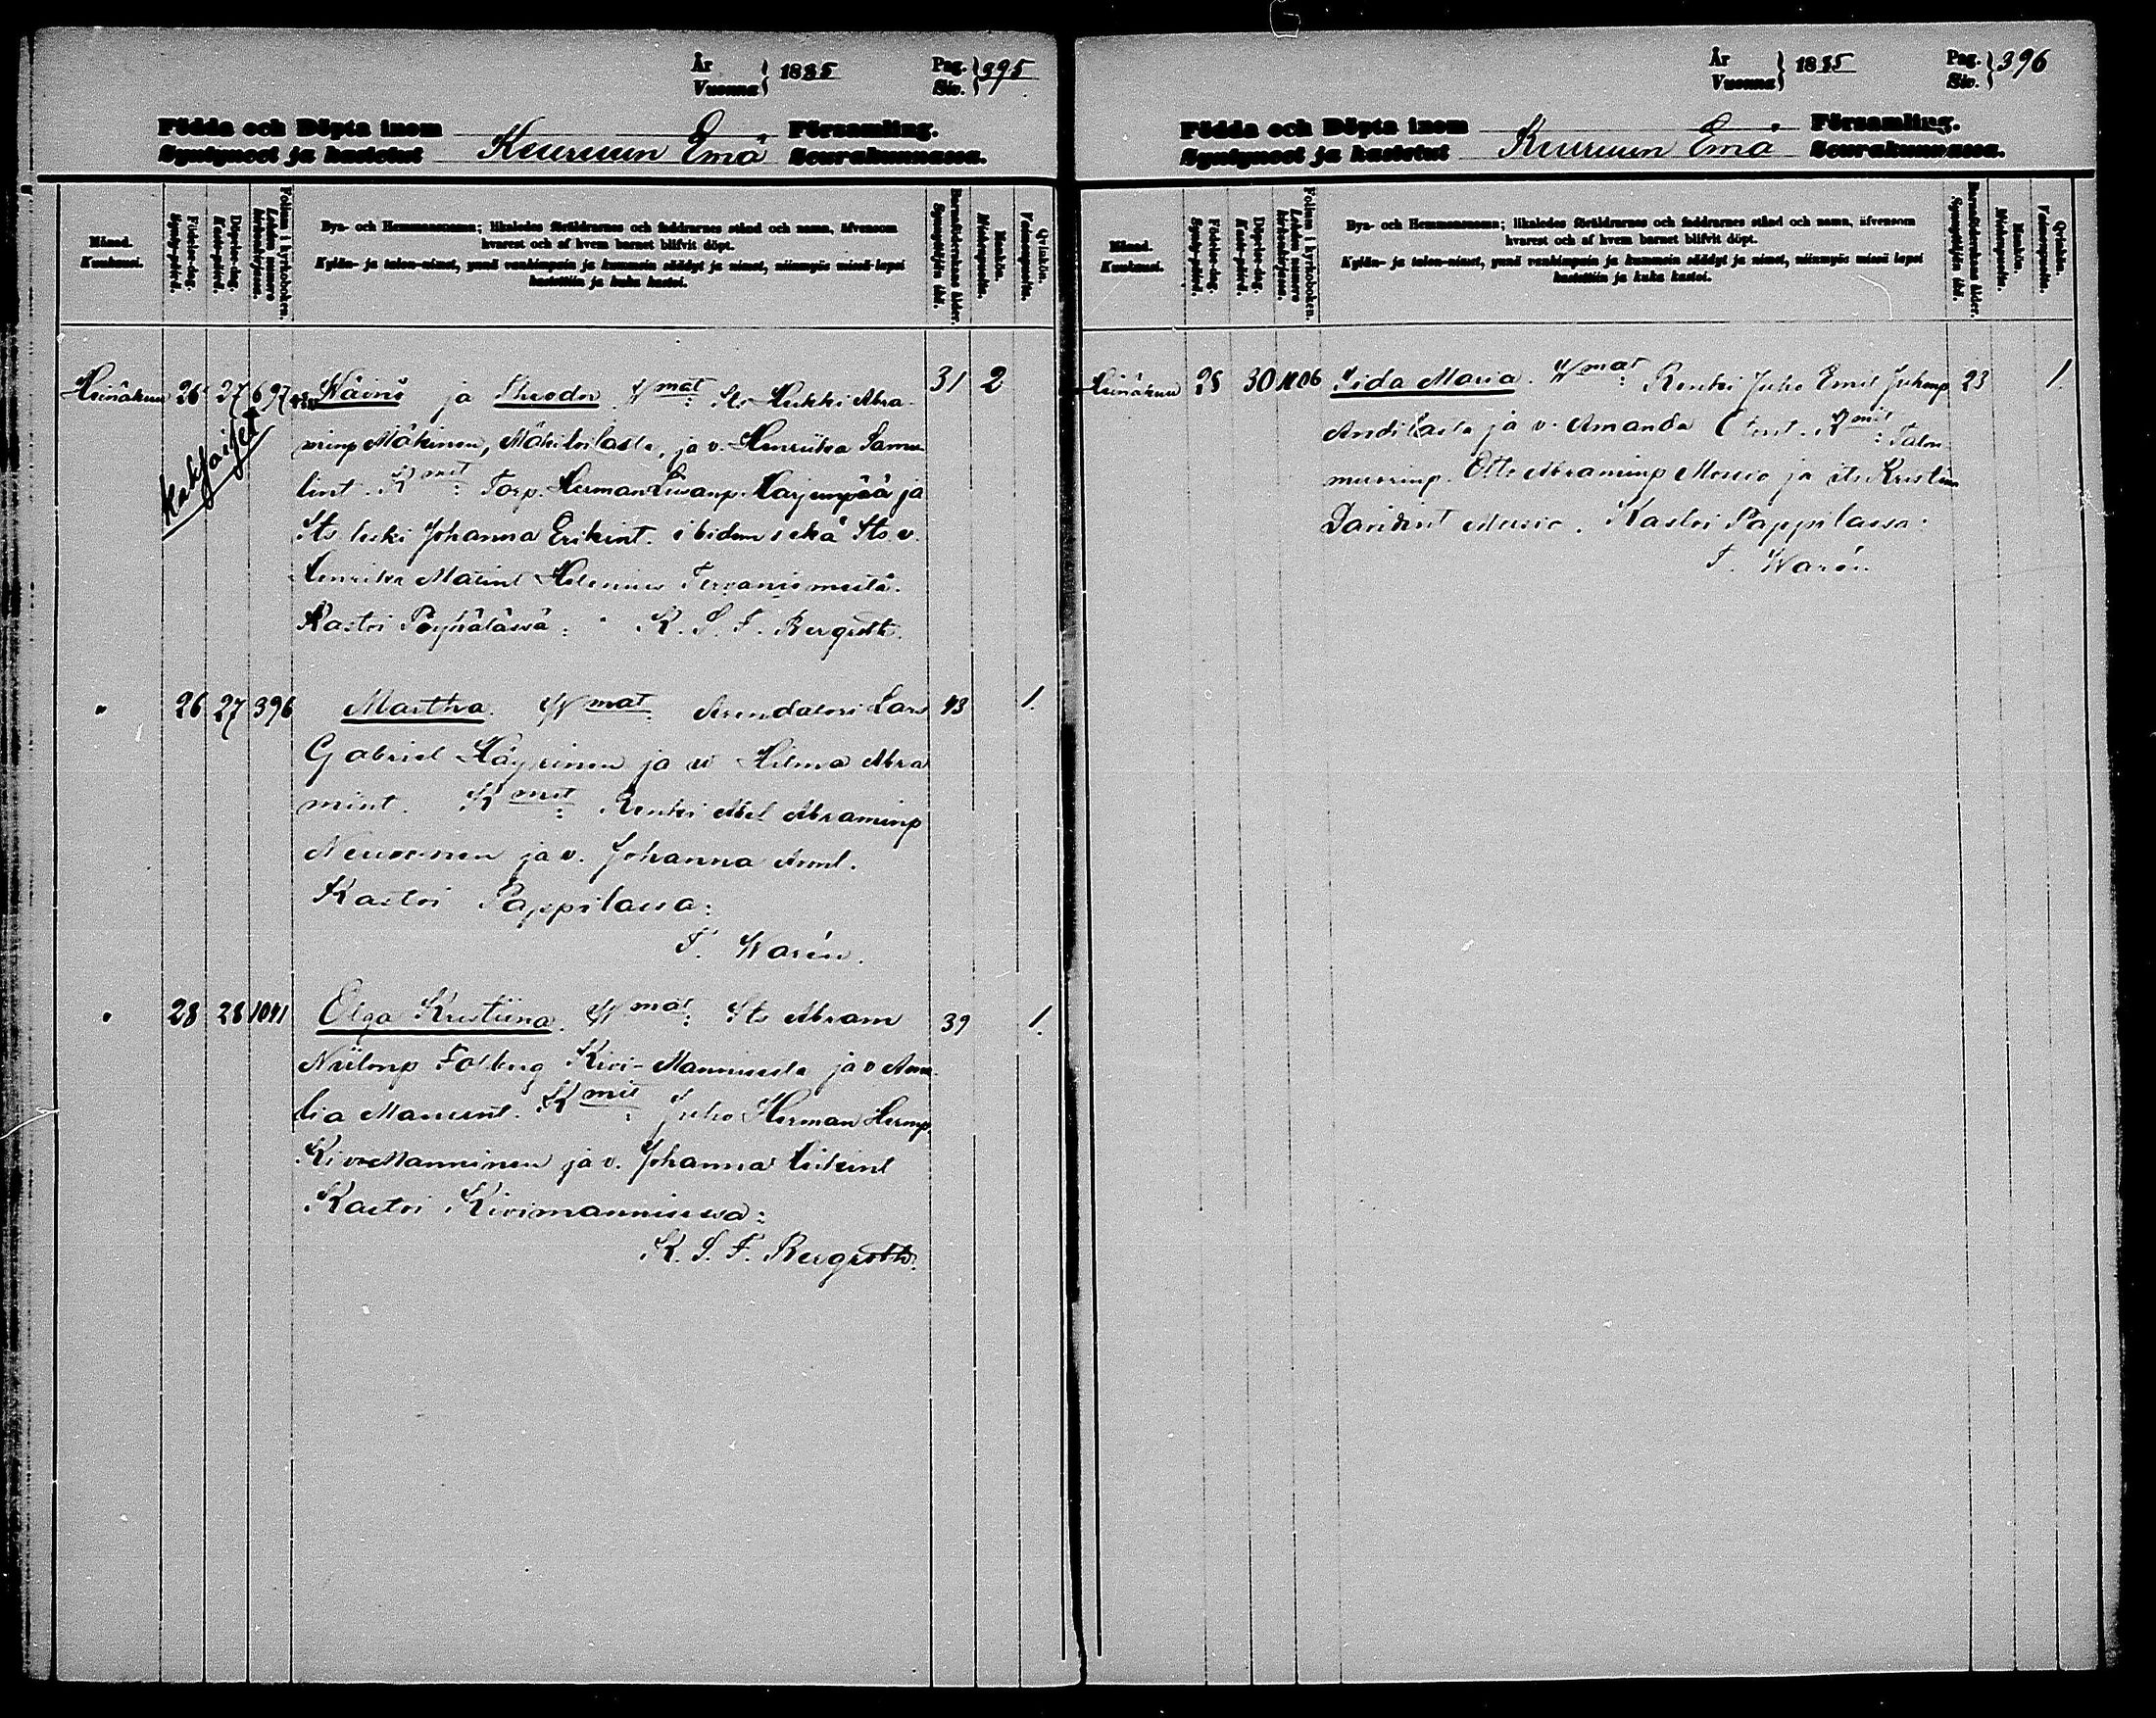 År
Vuonna } 1885
Pag.
Siv. } 395
Födda och Döpta inom
Syntyneet ja kastetut
Keuruun Emä
Församling.
Seurakunnassa.
Månad.
Kuukausi.
Födelse-dag.
Synty-päivä.
Döpelse-dag.
Kaste-päivä.
Folium i kyrkoboken.
Lehden numero kirkonkirjassa.
Bya- och Hemmansnamn; likaledes föräldrarnes och faddrarnes stånd och namn, äfvensom
hvarest och af hvem barnet blifvit döpt.
Kylän- ja talon-nimet, ynnä vanhimpain ja kummein säädyt ja nimet, niinmyös missä lapsi
kastettiin ja kuka kastoi.
Barnaföderskans ålder.
Synnyttäjän ikä.
Mankön.
Miehenpuolta.
Qvinkön.
Vaimonpuolta.
Heinäkuu 26 27 697 Wäinö ja Theodor. Wmat: Its Heikki Abra- 31 2
Kaksoiset
minp Mäkinen, Mäki, ja v. Henriika Samu-
lint. Kmit: Torp. Herman Harjunpää ja
Its leski Johanna Erikint. ibidem sekä Its v.
Henrika Matint Helenius
Kastoi Pöyhölässä: K. S. F. Bergroth.
" 26 27 396 Martha. Wmat: Arendatori Lars 43 1.
Gabriel Käyrinen ja w Hilma Abra
mint. Kmit: Renki Abel Abraminp
Nenonen ja v. Johanna
Kastoi Pappilassa:
F. Warén.
" 28 28 1041 Olga Kristiina. Wmat: Its Abram 39 1.
Niilonp Kivi-Mannisesta ja v Ama-
lia Kmit: Juho Herman Hermp.
KiviManninen ja v. Johanna
Kastoi Kivimannisessa:
K. S. F. Bergroth.
År
Vuonna } 1885
Pag.
Siv. } 396
Födda och Döpta inom
Syntyneet ja kastetut
Keuruun Emä
Församling.
Seurakunnassa.
Månad.
Kuukausi.
Födelse-dag.
Synty-päivä.
Döpelse-dag.
Kaste-päivä.
Folium i kyrkoboken.
Lehden numero kirkonkirjassa.
Bya- och Hemmansnamn; likaledes föräldrarnes och faddrarnes stånd och namn, äfvensom
hvarest och af hvem barnet blifvit döpt.
Kylän- ja talon-nimet, ynnä vanhimpain ja kummein säädyt ja nimet, niinmyös missä lapsi
kastettiin ja kuka kastoi.
Barnaföderskans ålder.
Synnyttäjän ikä.
Mankön.
Miehenpuolta.
Qvinkön.
Vaimonpuolta.
Heinäkuu 28 30 1106 Iida Maria. Wmat: Renki Juho Emil Juhonp 23 1.
ja v. Amanda Kmit: Talon
Otto Abraminp ja its Kristiina
Davidint Kastoi Pappilassa:
F. Warén